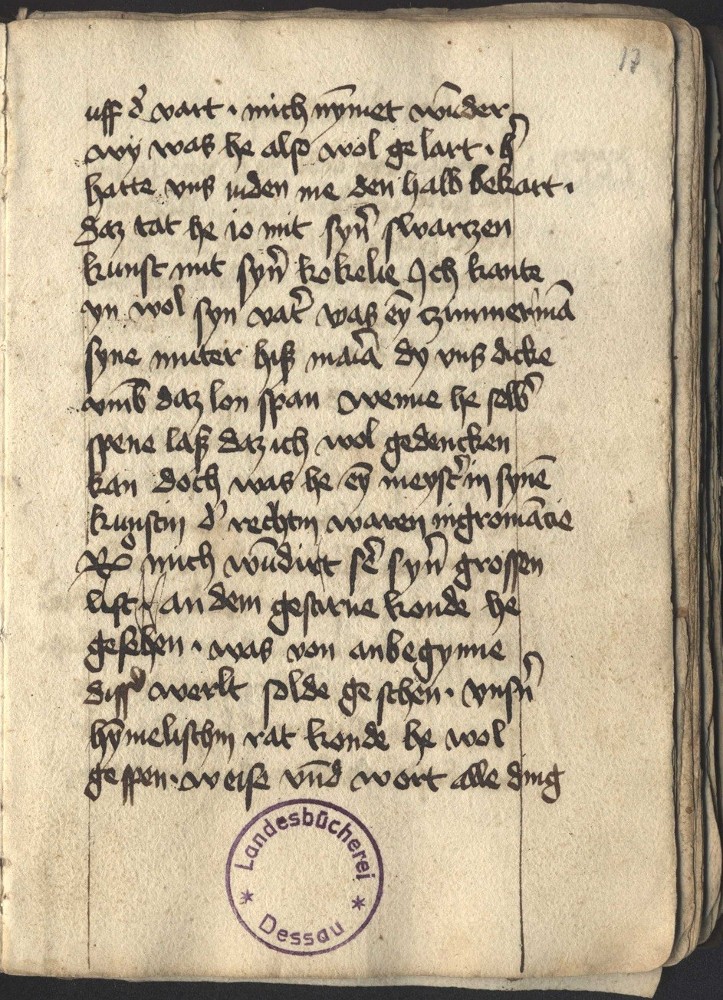 17
uff d' vart · mich nȳmet wūder
wy was he also wol gelart · h'
hatte vns iuden nie den halb bekart ·
daz tat he io mit syn̄ swartzen
kunst mit syn̄ kokelie Ich kante
yn wol syn vat' was ey̅ zimmermā
syne muter hiß maiā dy vns dicke
vmb daz lon span wenne he selb'
spene laß daz ich wol gedencken
kan doch was he ey̅ meyst' in synē
kunstin d' rechtin waren nigromācie
mich wūdirt sē syn̄ grossen
list · an dem gestirne konde he
gesehen · was von anbegynne
diss' werlt solde geschen · vnsn̄
hȳmelischin rat konde he wol
wise vnd wort alle ding
Landesbücherei
Dessau